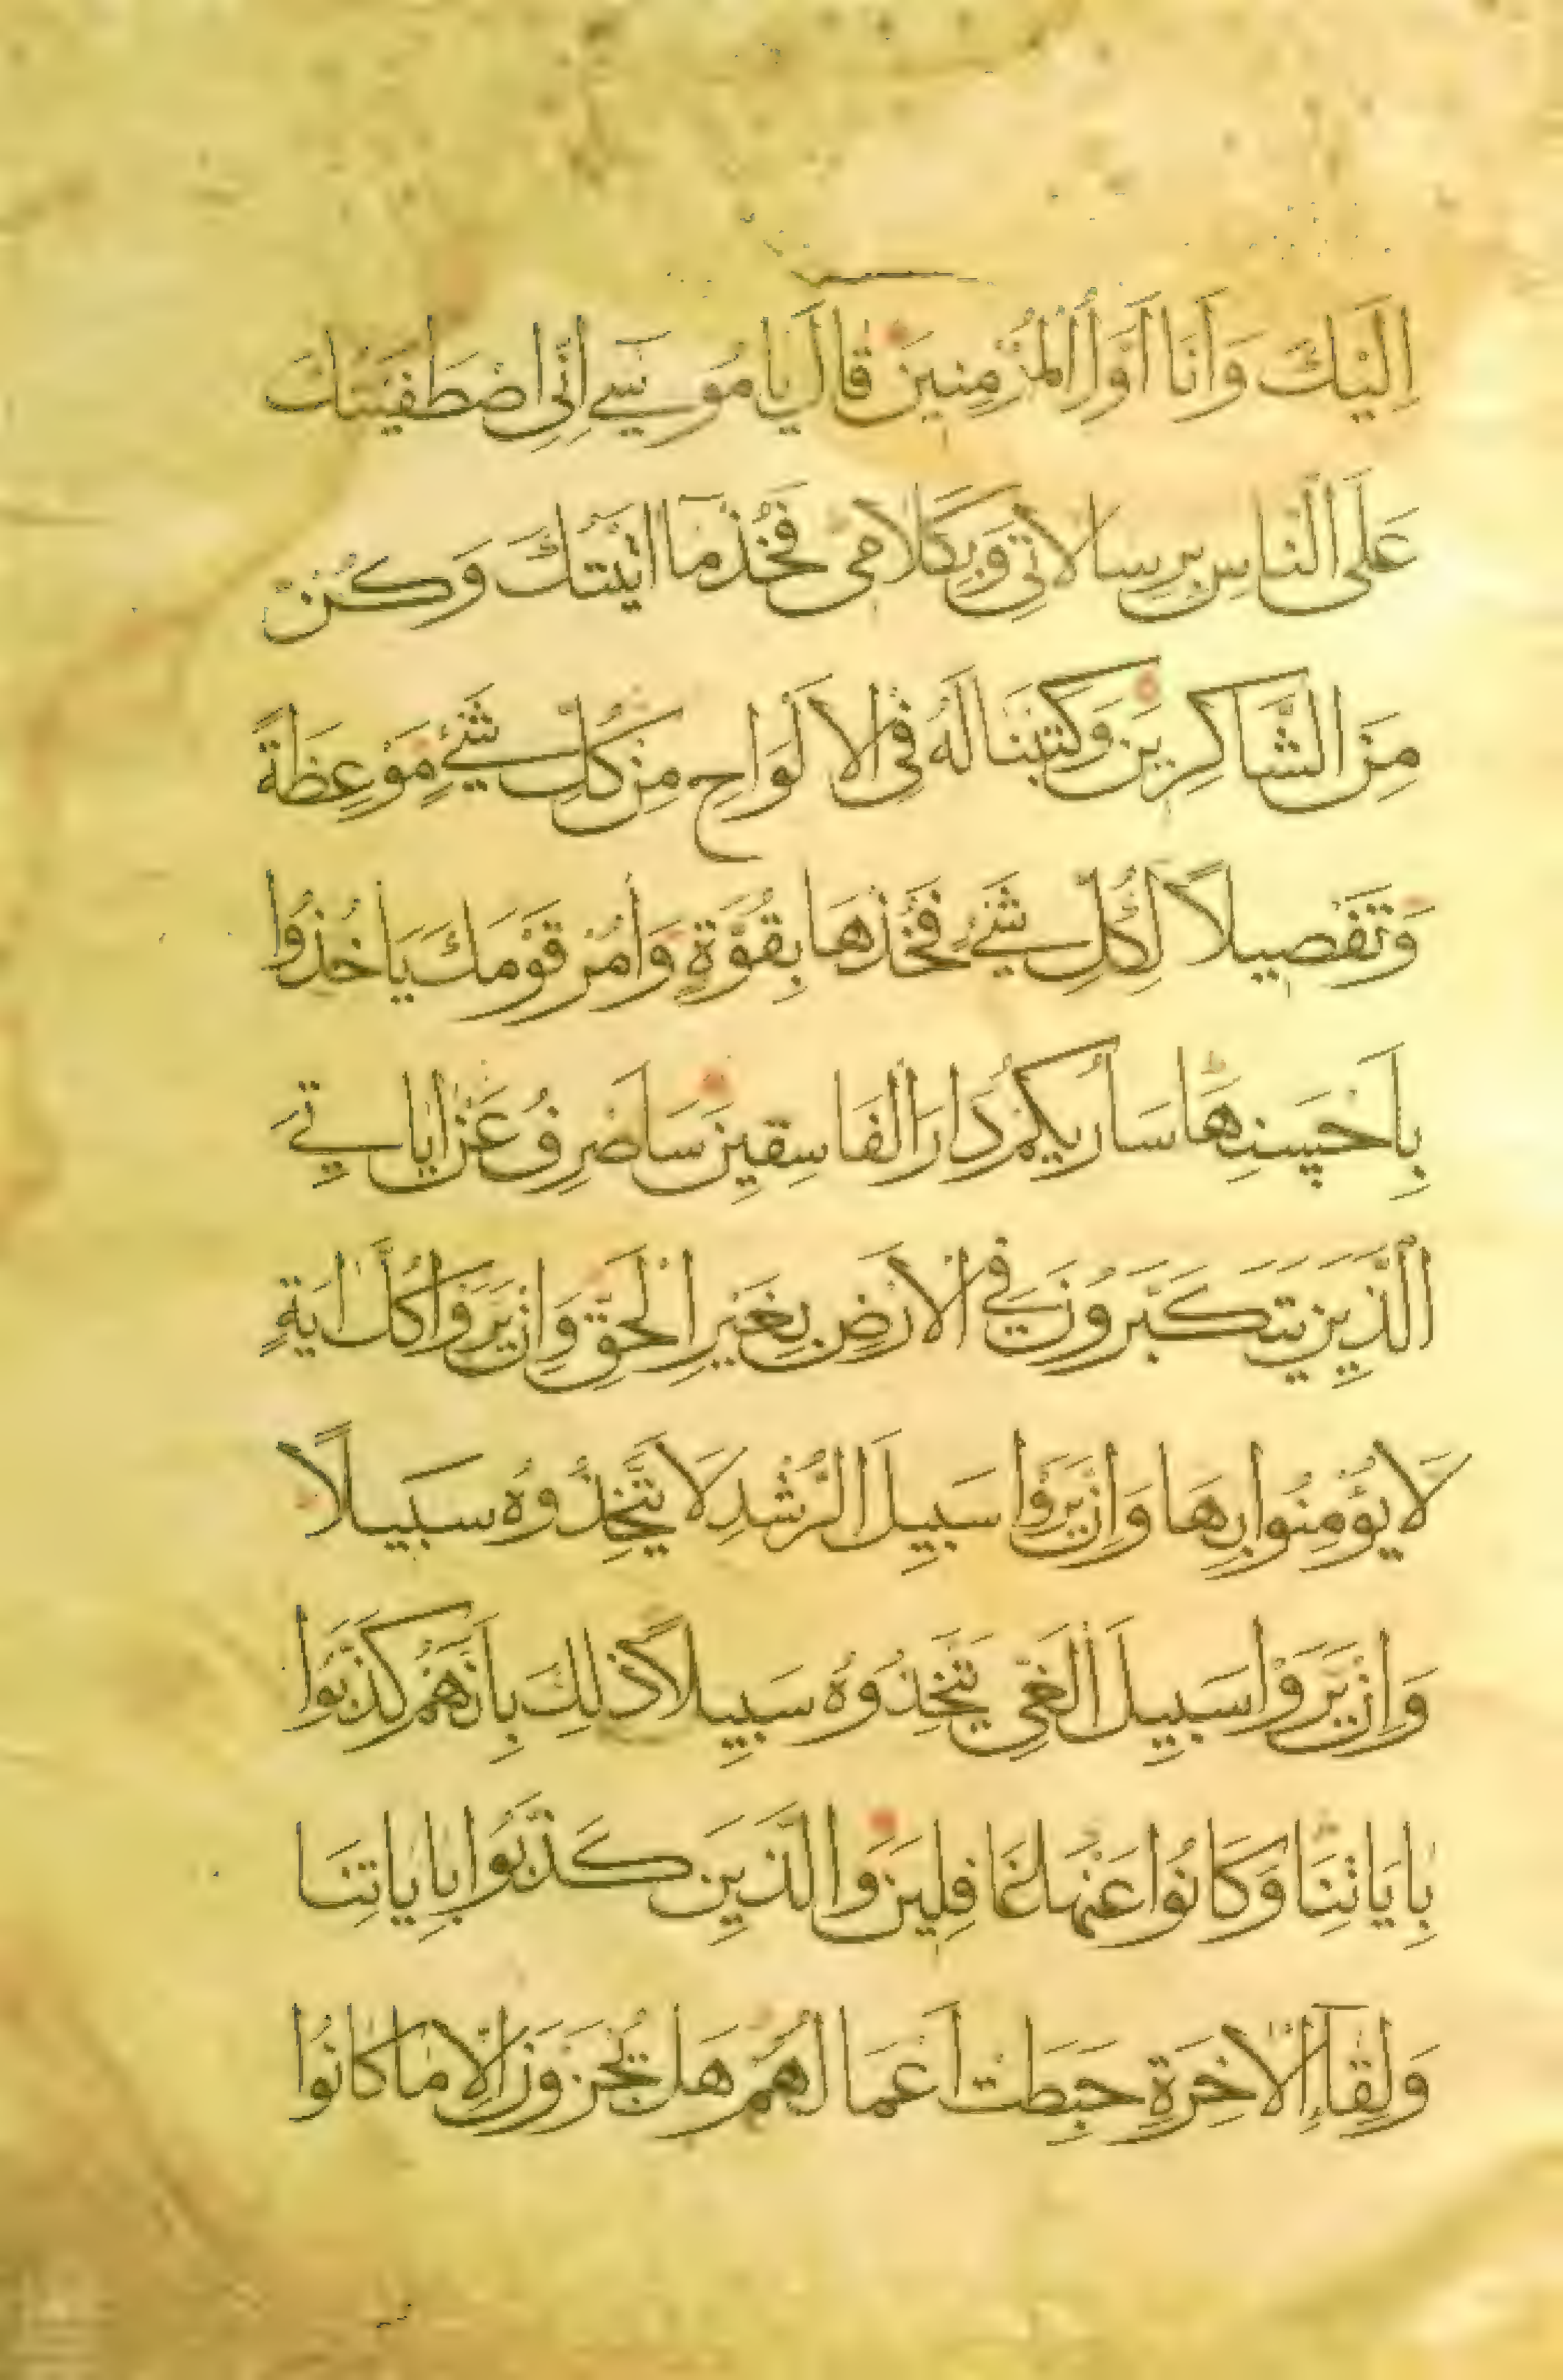 اِلَيْكَ وَاَنَا اَوَّلُ الْمُؤْمِنِينَ قَالَ يَا مُوسٰى اِنِّى اصْطَفَيْتُكَ
عَلَى النَّاسِ بِرِسَالَاتِى وَبِكَلَامِى فَخُذْ مَا اٰتَيْتُكَ وَكُنْ
مِنَ الشَّاكِرِينَ وَكَتَبْنَا لَهُ فِى الْاَلْوَاحِ مِنْ كُلِّ شَىْءٍ مَوْعِظَةً
وَتَفْصِيلًا لِكُلِّ شَىْءٍ فَخُذْهَا بِقُوَّةٍ وَأْمُرْ قَوْمَكَ يَاْخُذُوا
بِاَحْسَنِهَا سَاُرِيكُمْ دَارَ الْفَاسِقِينَ سَاَصْرِفُ عَنْ اٰيَاتِىَ
الَّذِينَ يَتَكَبَّرُونَ فِى الْاَرْضِ بِغَيْرِ الْحَقِّ وَاِنْ يَرَوْا كُلَّ اٰيَةٍ
لَا يُؤْمِنُوا بِهَا وَاِنْ يَرَوْا سَبِيلَ الرُّشْدِ لَا يَتَّخِذُوهُ سَبِيلًا
وَاِنْ يَرَوْا سَبِيلَ الْغَىِّ يَتَّخِذُوهُ سَبِيلًا ذٰلِكَ بِاَنَّهُمْ كَذَّبُوا
بِاٰيَاتِنَا وَكَانُوا عَنْهَا غَافِلِينَ وَالَّذِينَ كَذَّبُوا بِاٰيَاتِنَا
وَلِقَآءِ الْاٰخِرَةِ حَبِطَتْ اَعْمَالُهُمْ هَلْ يُجْزَوْنَ اِلَّا مَا كَانُوا